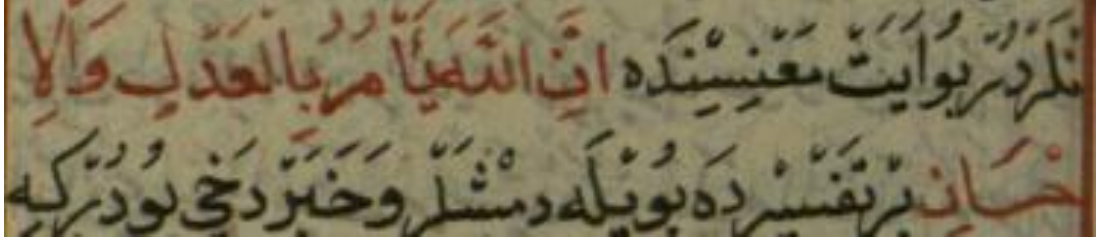 نلردر بو ایت معنیسنده ان الله یأمر بالعدل والا
حسان بر تفسیرده بویله دمشلر و خبر دخی بودر که